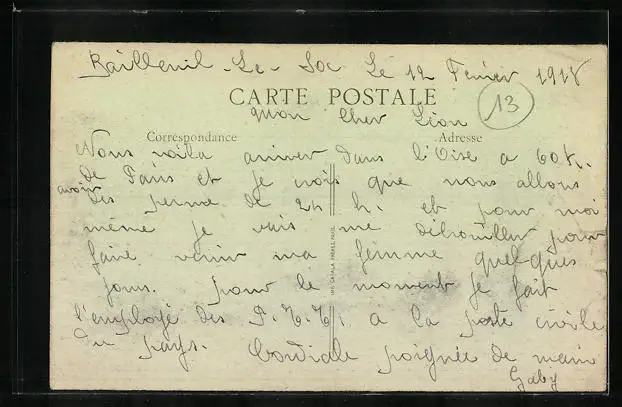 Bailleul-Le-Soc Le 12 Février 1918
CARTE POSTALE
13
Mon Cher Léon
Correspondance
Adresse
Nous voila arriver dans l'Oise a 60 K.
de Paris et je crois que nous allons
avoir des perme de 24 h. et pour moi
même je vais me débrouiller pour
faire venir ma femme quelques
jours. pour le moment je fait
l'employé des P.T.T. a la poste civile
du pays. Cordiale poignée de main
Gaby